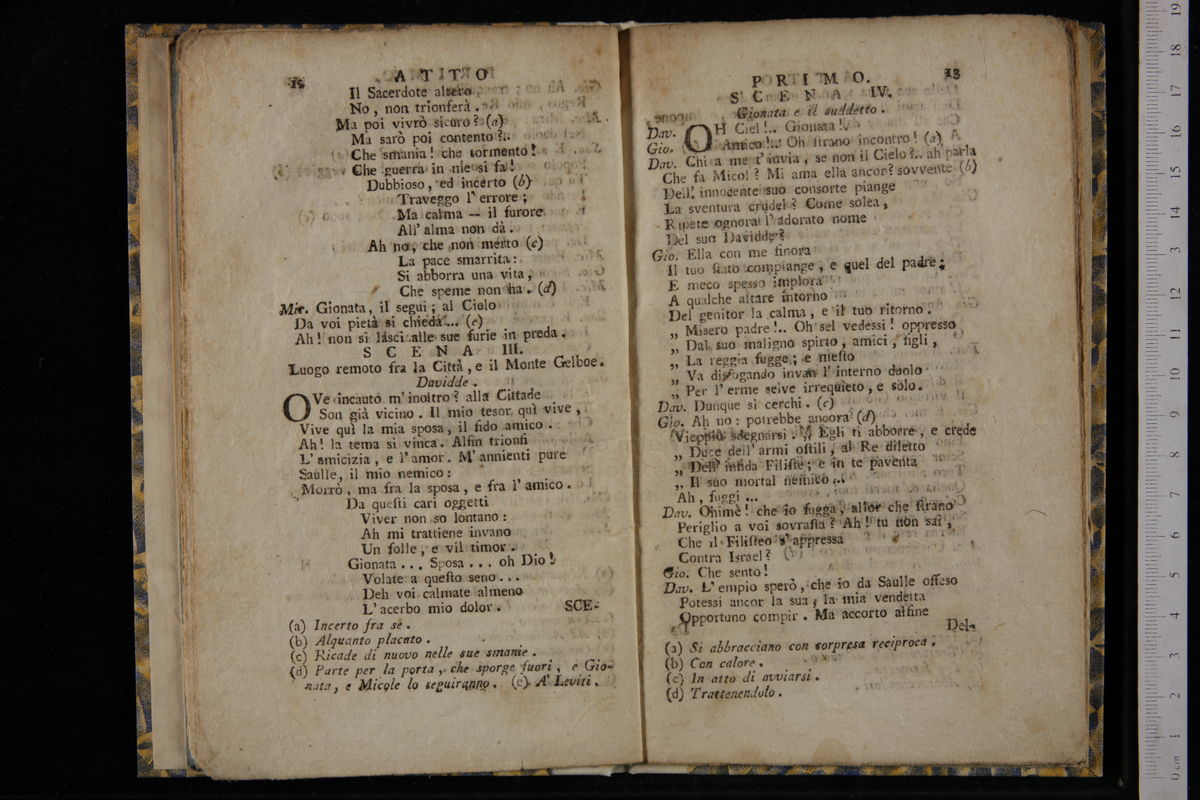 12 ATTO
Il Sacerdote altero
No, non trionferà.
Ma poi vivrò sicuro? (a)
Ma sarò poi contento?..
Che smania! che tormento!
Che guerra in me si fa!
Dubbioso, ed incerto (b)
Traveggo l'errore;
Ma calma — il furore
All'alma non dà.
Ah no, che non merto (c)
La pace smarrita:
Si abborra una vita,
Che speme non ha. (d)
Mic. Gionata, il segui; al Cielo
Da voi pietà si chieda... (e)
Ah! non si lasci alle sue furie in preda.
SCENA III.
Luogo remoto fra la Città, e il Monte Gelboe.
Davidde.
OVe incauto m'inoltro? alla Cittade
Son già vicino. Il mio tesor qui vive,
Vive quì la mia sposa, il fido amico.
Ah! la tema si vinca. Alfin trionfi
L'amicizia, e l'amor. M'annienti pure
Saulle, il mio nemico:
Morrò, ma fra la sposa, e fra l'amico.
Da questi cari oggetti
Viver non so lontano:
Ah mi trattiene invano
Un folle, e vil timor.
Gionata... Sposa... oh Dio!
Volate a questo seno...
Deh voi calmate almeno
L'acerbo mio dolor. SCE-
(a) Incerto fra sè.
(b) Alquanto placato.
(c) Ricade di nuovo nelle sue smanie.
(d) Parte per la porta, che sporge fuori, e Gio-
nata, e Micole lo seguiranno. (e) A' Leviti.
PRIMO. 13
SCENA IV.
Gionata e il suddetto.
Dav. OH Ciel!.. Gionata!
Gio. Amico!.. Oh strano incontro! (a)
Dav. Chi a me t'invia, se non il Cielo?.. ah parla
Che fa Micol? Mi ama ella ancor? sovvente (b)
Dell'innocente suo consorte piange
La sventura crudel? Come solea,
Ripete ognora l'adorato nome
Del suo Davidde?
Gio. Ella con me finora
Il tuo stato compiange, e quel del padre;
E meco spesso implora
A qualche altare intorno
Del genitor la calma, e il tuo ritorno.
„ Misero padre!.. Oh sel vedessi! oppresso
„ Dal suo maligno spirto, amici, figli,
„ La reggia fugge; e mesto
„ Va disfogando invan l'interno duolo
„ Per l'erme selve irrequieto, e solo.
Dav. Dunque si cerchi. (c)
Gio. Ah no: potrebbe ancora (d)
Vieppiù sdegnarsi. „ Egli ti abborre, e crede
„ Duce dell'armi ostili, al Re diletto
„ Dell'infida Filiste; e in te paventa
„ Il suo mortal nemico...
Ah, fuggi...
Dav. Ohimè! che io fugga, allor che strano
Periglio a voi sovrasta? Ah! tu non sai,
Che il Filisteo s'appressa
Contra Israel?
Gio. Che sento!
Dav. L'empio sperò, che io da Saulle offeso
Potessi ancor la sua, la mia vendetta
Opportuno compir. Ma accorto alfine
Del-
(a) Si abbracciano con sorpresa reciproca.
(b) Con calore.
(c) In atto di avviarsi.
(d) Trattenendolo.